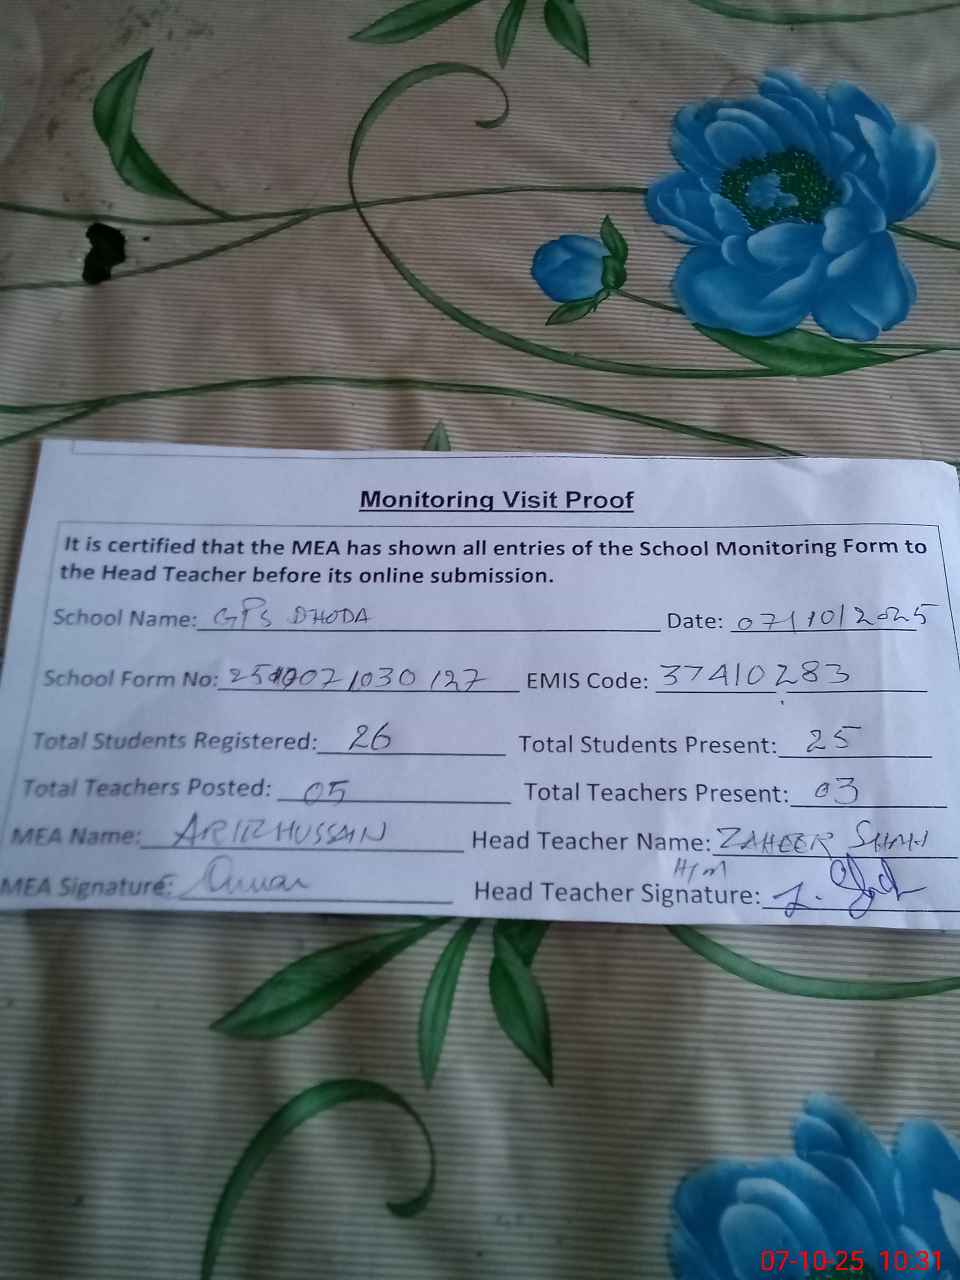 Monitoring Visit Proof
It is certified that the MEA has shown all entries of the School Monitoring Form to
the Head Teacher before its online submission.
School Name: GPS DHODA Date: 07/10/2025
School Form No: EMIS Code: 37410283
Total Students Registered: 26 Total Students Present: 25
Total Teachers Posted: 05 Total Teachers Present: 03
MEA Name: HUSSAIN Head Teacher Name: ZAHEER SHAH
MEA Signature: H/M
Head Teacher Signature:
07-10-25 10:31